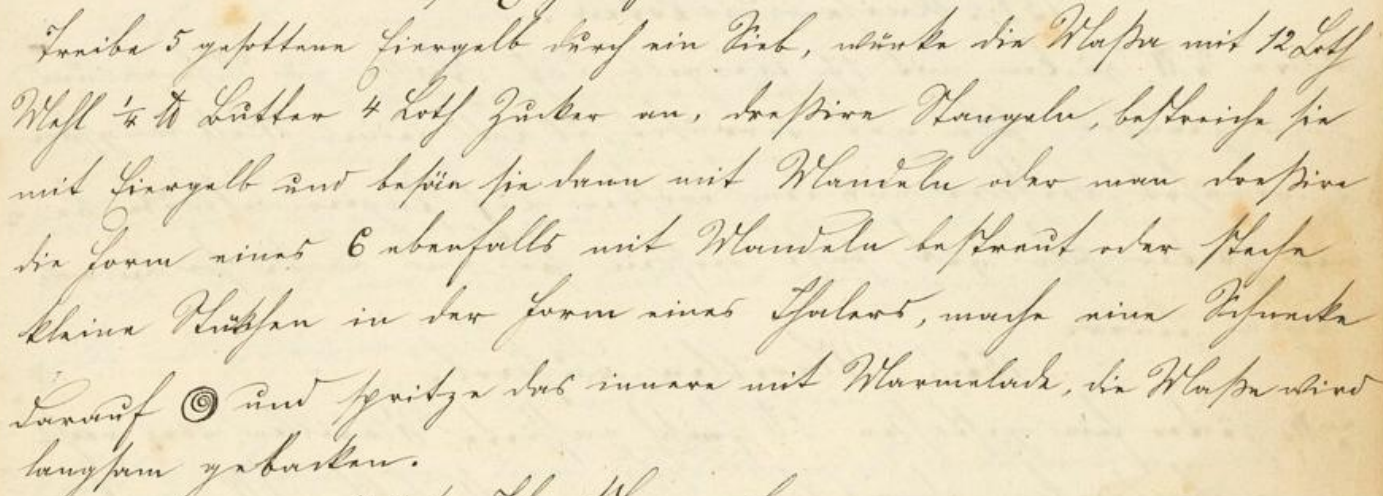 Treibe 5 gesottene Eiergelb durch ein Sieb, würke die Maßa mit 12 Loth
Mehl ¼ ℔ Butter 4 Loth Zucker an, dreßire Stangeln, bestreiche sie
mit Eiergelb und besäe sie dann mit Mandeln oder man dreßire
die Form eines 6 ebenfalls mit Mandeln bestreut oder steche
kleine Stükchen in der Form eines Thalers, mache eine Schnecke
darauf und spritze das innere mit Marmelade, die Maße wird
langsam gebacken.